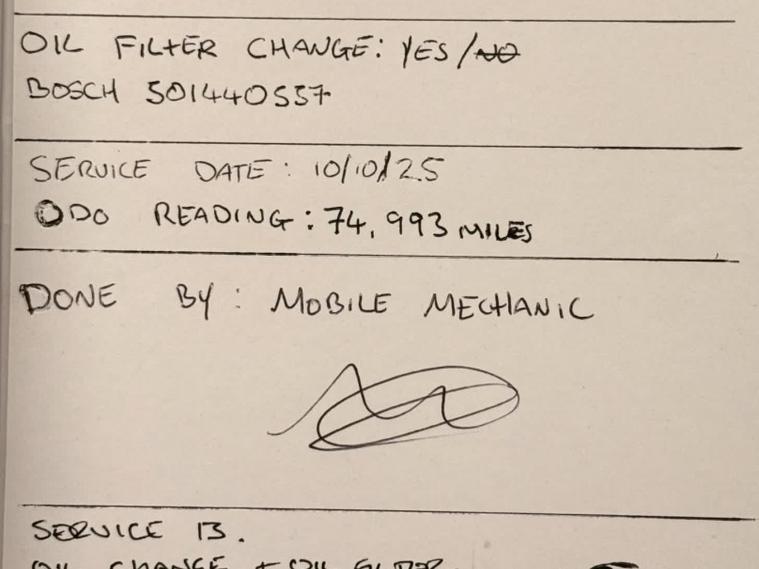 OIL FILTER CHANGE: YES / NO
BOSCH 501440557
SERVICE DATE: 10/10/25
ODO READING: 74,993 MILES
DONE BY: MOBILE MECHANIC
SERVICE 13.
OIL CHANGE + OIL FILTER